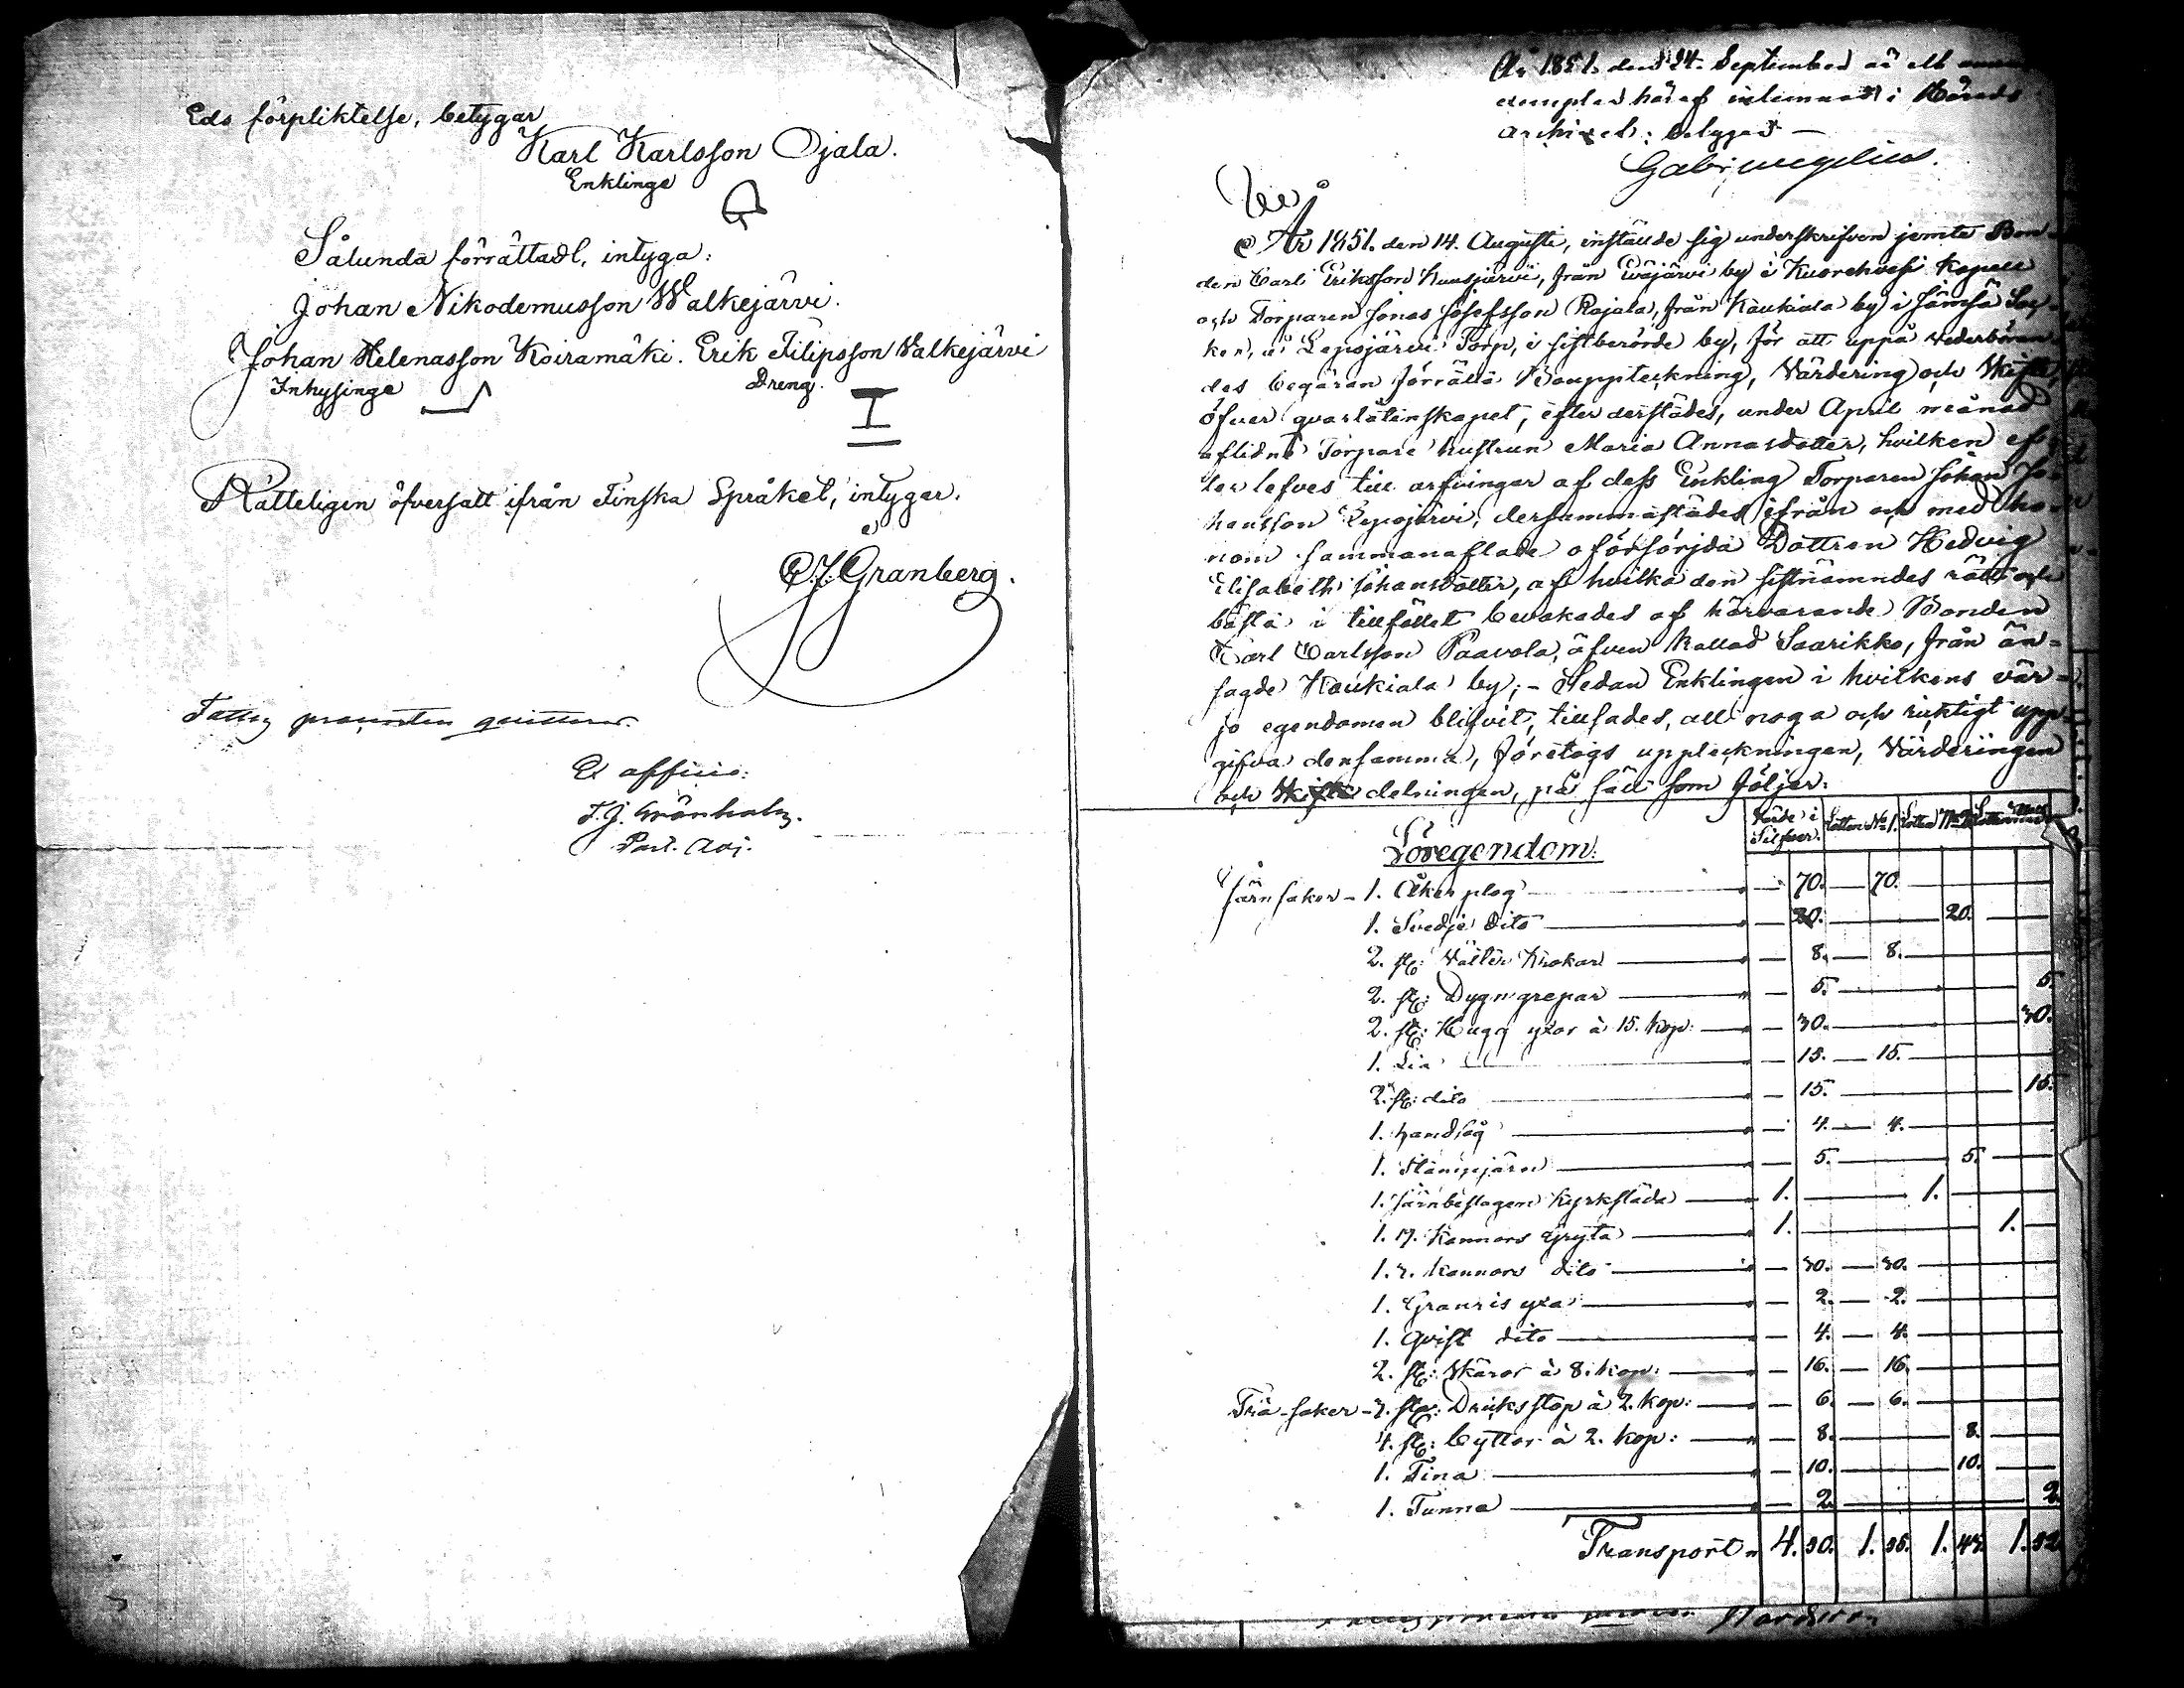 Eds förpliktelse, betygar
Karl Karlsson Ojala.
Enklinge
Sålunda förrättadt, intyga:
Johan Nikodemusson Walkejärvi.
Johan Helenasson Koiramäki. Erik Filipsson Walkejärvi
Inhysinge Dreng.
Rätteligen öfversatt ifrån Finska Språket, intygar.
Granberg.
Fattig procenten quitteras.
Ex officio:
F. J. Grönholm.
Past. Adj.
År 1851. den 24. September är ett
exemplar häraf inlemnadt i Härads
archivet; betygar —
År 1851. den 14. Augusti, instälde sig underskrifven jemte Bon-
den Carl Eriksson Kuusjärvi, från Ewäjärvi by i Kuorehvesi Kapell
och Torparen Jonas Josefsson Rajala, från Kaukiala by i Jämsä Soc-
ken, å Lepojärvi Torp, i sistberörde by, för att uppå vederböran-
des begäran förrätta Bouppteckning, Värdering och Skifte,
öfver qvarlåtenskapet, efter derstädes, under April månad
aflidne Torpare hustrun Maria Annasdotter, hvilken ef-
terlefves till arfvingar af dess Enkling Torparen Johan Jo-
hansson Lepojärvi, dersammastädes ifrån och med ho-
nom sammanaflade oförsörjda Dottren Hedvig
Elisabeth Johansdotter, af hvilka den sistnämndes rätt och
bästa i tillfället bevakades af närvarande Bonden
Karl Carlsson Paavola, äfven kallad Saarikko, från än-
sagde Kaukiala by; - Sedan Enklingen i hvilkens vär-
jo egendomen blifvit, tillsades, att noga och riktigt upp-
gifva densamma, företogs uppteckningen, Värderingen
och delningen, på sätt som följer:
Löregendom: Värde i Silfver. Lotten No 1. Lotten No 2.
Järnsaker - 1. Åker plog — 70. — 70.
1. Svedje dito — 20. — 20.
2. st: Välter Krokar — 8. — 8.
2. st: Dyngrepar — 5. — 5.
2. st: Hugg yxor à 15. kop: — 30. — 30.
1. Lia — 15. — 15.
2. st: dito — 15. — 15.
1. handsåg — 4. — 4.
1. Stämpjärn — 5. — 5.
1. järnbeslagen Kyrksläda — 1. — 1.
1. 7. Kannors Gryta — 1. — 1.
1. 3. kannors dito — 30. — 30.
1. Granris yxa — 2. — 2.
1. Qvist dito — 4. — 4.
2. st: Skäror à 8. kop: — 16. — 16.
Trä-saker - 3. st: Dricksstop à 2. kop: — 6. — 6.
4. st: byttor à 2. kop: — 8. — 8.
1. Tina — 10. — 10.
1. Tunna — 2. — 2.
Transport — 4. 50. 1. 55. 1. 43. 1. 52.